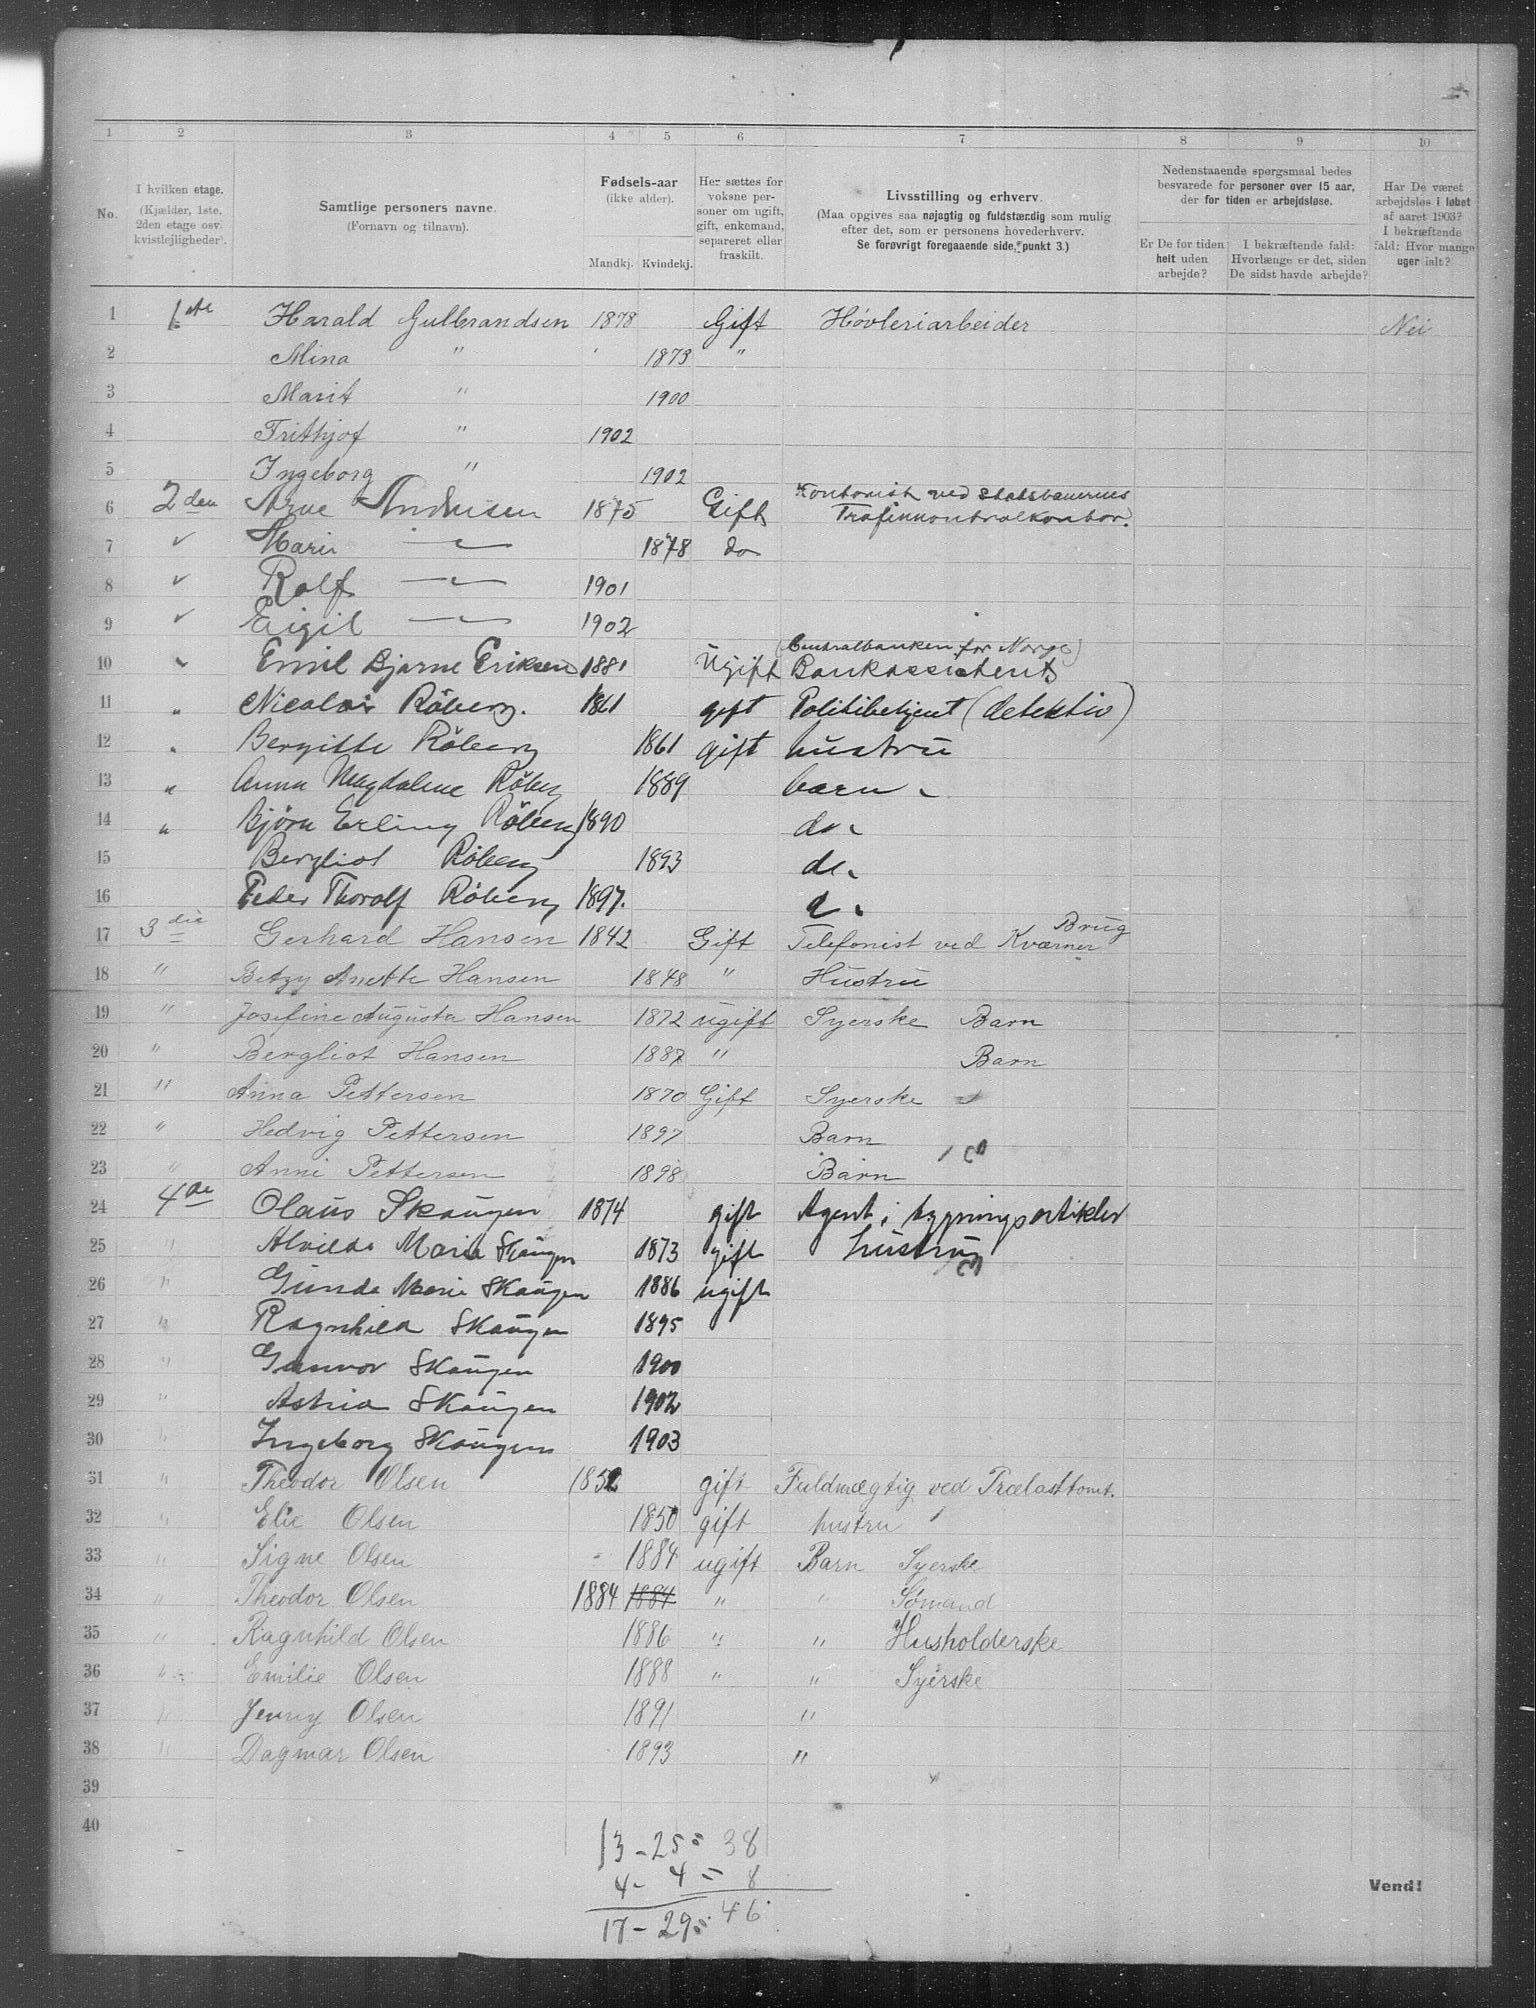 1 2 3 4 5 6 7 8 9 10
No.
I hvilken etage.
(Kjælder, 1ste,
2den etage osv.
kvistlejligheder).
Samtlige personers navne.
(Fornavn og tilnavn).
Fødsels-aar
(ikke alder).
Mandkj. Kvindekj.
Her sættes for
voksne per-
soner om ugift,
gift, enkemand,
separeret eller
fraskilt.
Livsstilling og erhverv.
(Maa opgives saa nøjagtig og fuldstændig som mulig
efter det, som er personens hovederhverv.
Se forøvrigt foregaaende side, punkt 3.)
Nedenstaaende spørgsmaal bedes
besvarede for personer over 15 aar,
der for tiden er arbejdsløse.
Er De for tiden
helt uden
arbejde?
I bekræftende fald:
Hvorlænge er det, siden
De sidst havde arbejde?
Har De været
arbejdsløs i løbet
af aaret 1903?
I bekræftende
fald: Hvor mange
uger ialt?
1 1ste Harald Gulbrandsen 1878 Gift Høvleriarbeider Nei
2 Mina " 1873 "
3 Marit " 1900
4 Frithjof " 1902
5 Ingeborg " 1902
6 2den Arne Andersen 1875 Gift Kontorist ved Statsbanernes
Trafikkontrolkontor.
7 Marie 1878 do
8 Rolf 1901
9 Eigil 1902
10 " Emil Bjarne Eriksen 1881 Ugift (Centralbanken for Norge)
Bankassistent
11 " Nicolai Röberg. 1861 gift Politibetjent (detektiv)
12 " Bergitte Röberg 1861 gift hustru
13 " Anna Magdalene Röberg 1889 barn
14 " Bjørn Erling Röberg 1890 do.
15 Bergliot Röberg 1893 do.
16 Peder Thorolf Röberg 1897. d.
17 3die Gerhard Hansen 1842 Gift Telefonist ved Kværner Brug
18 " Betzy Anette Hansen 1848 " Hustru
19 " Josefine Augusta Hansen 1872 ugift Syerske Barn
20 " Bergliot Hansen 1887 " Barn
21 " Anna Pettersen 1870 Gift Syerske
22 " Hedvig Pettersen 1897 Barn
23 " Anni Pettersen 1898 Barn
24 4de Olaus Skaugen 1874 gift Agent i bygningsartikler
25 Alvilda Marie Skaugen 1873 gift hustru
26 " Gunda Marie Skaugen 1886 ugift
27 " Ragnhild Skaugen 1895
28 " Gunvor Skaugen 1900
29 " Astrid Skaugen 1902
30 " Ingeborg Skaugen 1903
31 " Theodor Olsen 1852 gift Fuldmægtig ved Trælasttomt.
32 " Elie Olsen 1850 gift hustru
33 " Signe Olsen 1884 ugift Barn Syerske
34 " Theodor Olsen 1884 1884 " " Sømand
35 " Ragnhild Olsen 1886 " " Husholderske
36 " Emilie Olsen 1888 " " Syerske
37 " Jenny Olsen 1891 "
38 " Dagmar Olsen 1893 "
39
40
13 - 25 = 38
4 - 4 = 8
17 - 29 = 46
Vend!